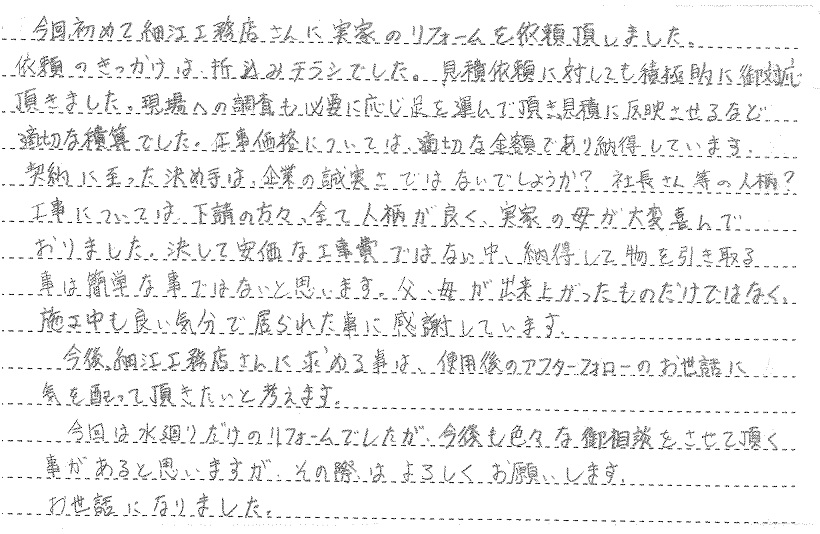 今回初めて細江工務店さんに実家のリフォームを依頼頂しました。
依頼のきっかけは、折込みチラシでした。見積依頼に対しても積極的に御対応
頂きました。現場への調査も必要に応じ足を運んで頂き見積に反映させるなど
適切な積算でした。工事価格については、適切な金額であり納得しています。
契約に至った決め手は、企業の誠実さではないでしょうか?社長さん等の人柄?
工事については、下請の方々、全て人柄が良く、実家の母が大変喜んで
おりました。決して安価な工事費ではない中、納得して物を引き取る
事は簡単な事ではないと思います。父、母が出来上がったものだけではなく、
施工中も良い気分で居られた事に感謝しています。
今後、細江工務店さんに求める事は、使用後のアフターフォローのお世話に
気を配って頂きたいと考えます。
今回は水廻りだけのリフォームでしたが、今後も色々な御相談をさせて頂く
事があると思いますが、その際はよろしくお願いします。
お世話になりました。